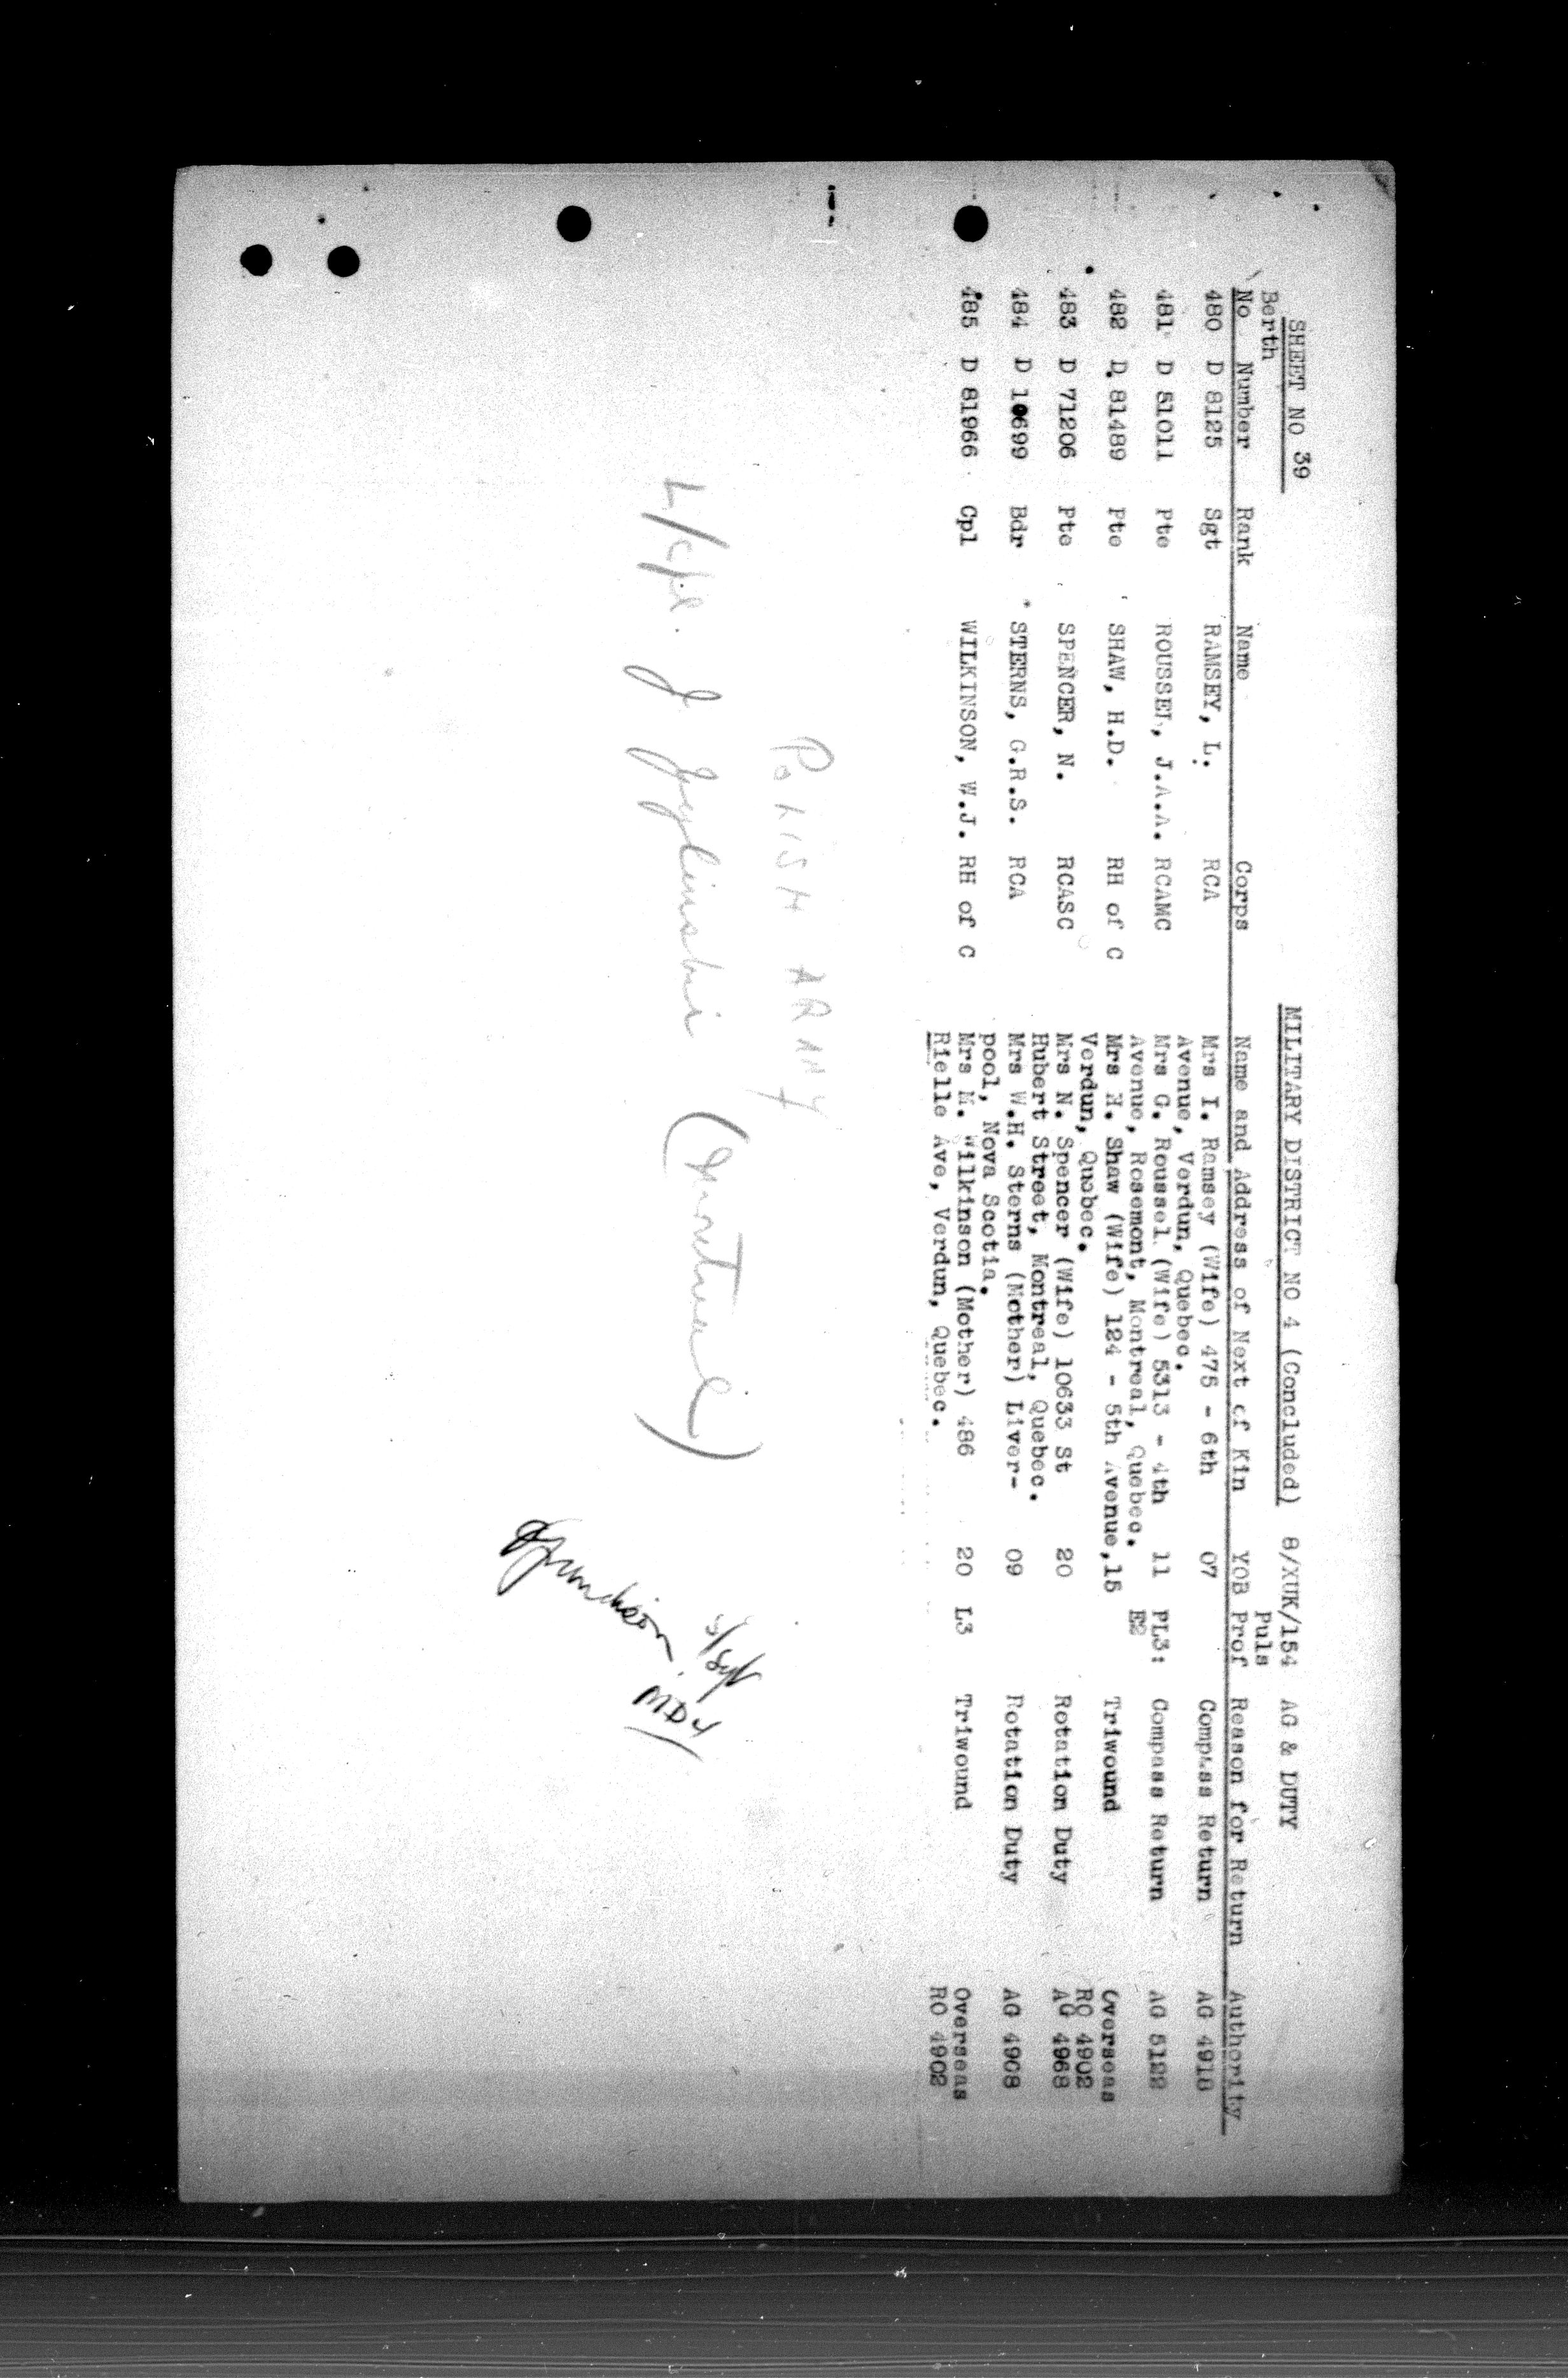 SHEET NO 39 MILITARY DISTRICT NO 4 (Concluded) 8/XUK/154 AG & DUTY
Berth Puls
No Number Rank Name Corps Name and Address of Next of Kin YOB Prof Reason for Return Authority
480 D 8125 Sgt RAMSEY, L. RCA Mrs I. Ramsey (Wife) 475 - 6th 07 Compass Return AG 4918
Avenue, Verdun, Quebec.
481 D 51011 Pte ROUSSEL, J.A.A. RCAMC Mrs G. Roussel (Wife) 5313 - 4th 11 PL3: Compass Return AG 5122
Avenue, Rosemont, Montreal, Quebec. E2
482 D 81489 Pte SHAW, H.D. RH of C Mrs H. Shaw (Wife) 124 - 5th Avenue,15 Triwound Overseas
Verdun, Quebec. RO 4902
483 D 71206 Pte SPENCER, N. RCASC Mrs N. Spencer (Wife) 10633 St 20 Rotation Duty AG 4968
Hubert Street, Montreal, Quebec.
484 D 10699 Bdr STERNS, G.R.S. RCA Mrs W.H. Sterns (Mother) Liver- 09 Rotation Duty AG 4968
pool, Nova Scotia.
485 D 81966 Cpl WILKINSON, W.J. RH of C Mrs M. Wilkinson (Mother) 486 20 L3 Triwound Overseas
Rielle Ave, Verdun, Quebec. RO 4902
POLISH ARMY
L/Cpl. J (Montreal)
S/Sgt
MD4